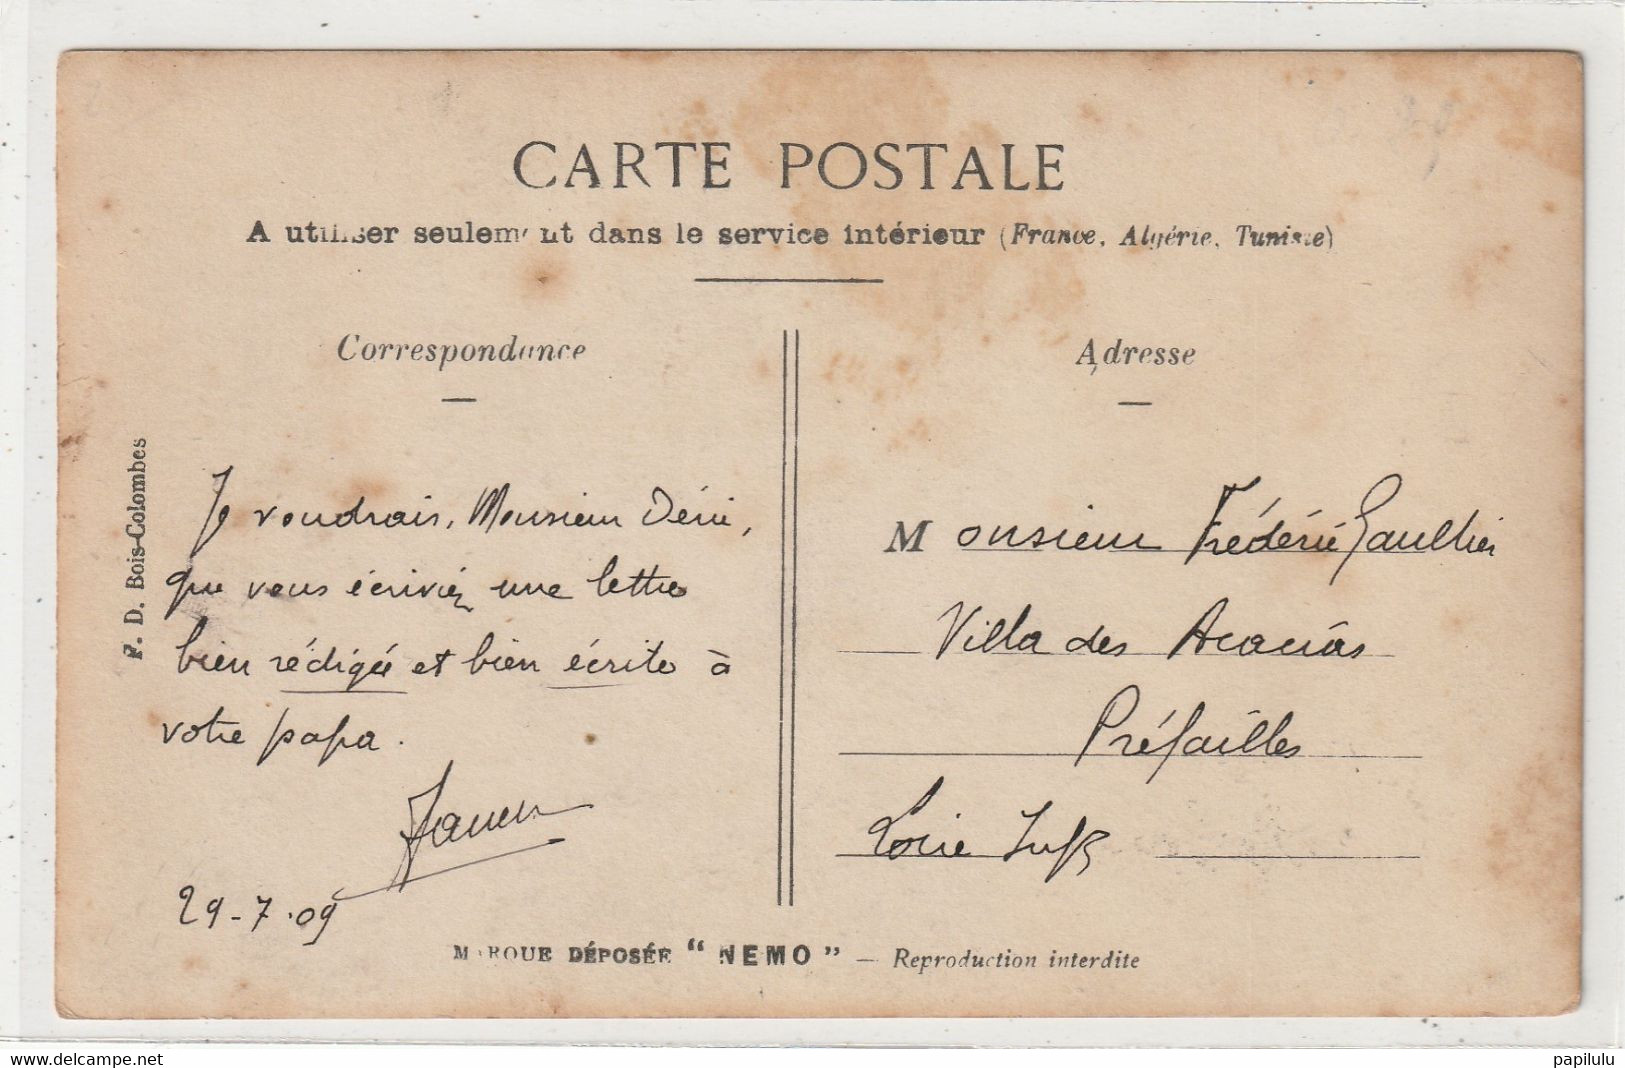 CARTE POSTALE
A utiliser seulement dans le service intérieur (France, Algérie, Tunisie)
Correspondance
Adresse
F. D. Bois-Colombes
Je voudrais, Monsieur Déric,
que vous écriviez une lettre
bien rédigée et bien écrite à
votre papa.
29-7-09
Monsieur Frédéric Gaulthier
Villa des Acacias
Préfailles
Loire Infre
MARQUE DÉPOSÉE " NEMO " — Reproduction interdite
https://www.delcampe.net
papilulu